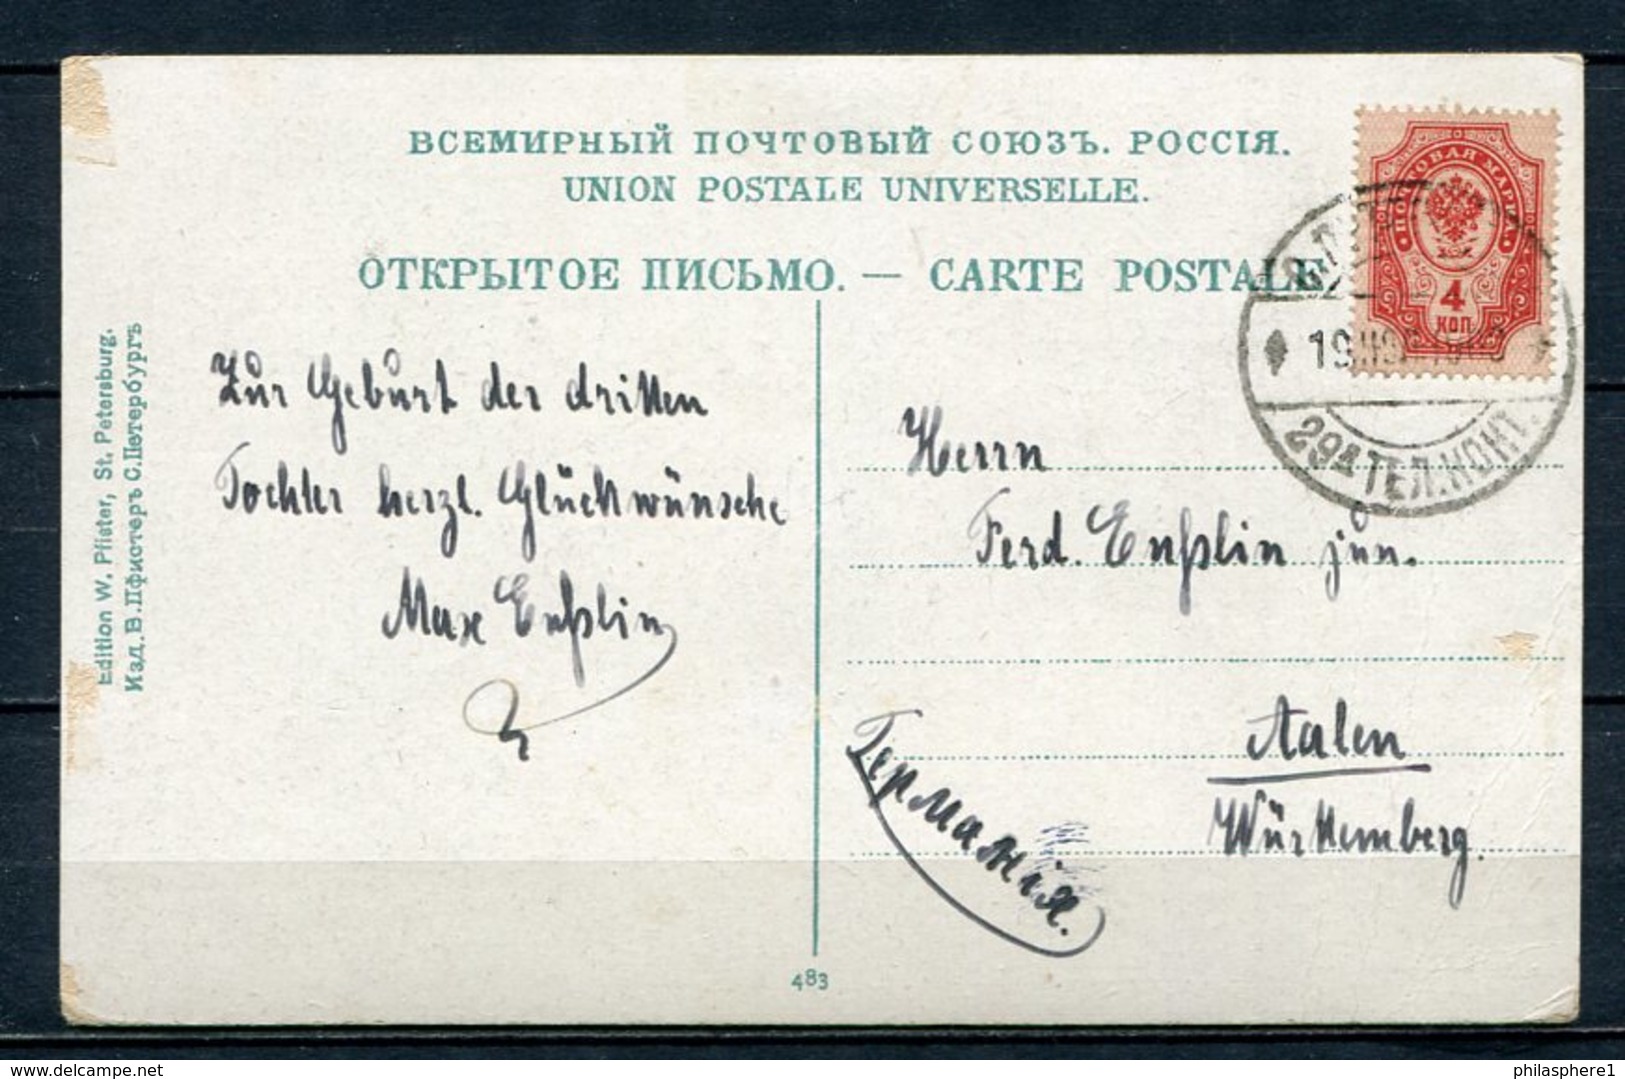 ВСЕМИРНЫЙ ПОЧТОВЫЙ СОЮЗЪ. РОССІЯ.
UNION POSTALE UNIVERSELLE.
ОТКРЫТОЕ ПИСЬМО. — CARTE POSTALE
ПОЧТОВАЯ МАРКА
4
КОП
19
29 ТЕЛ.КОНТ.
Edition W. Pfister, St. Petersburg.
Изд. В. Пфистеръ С.Петербургъ
Zur Geburt der dritten
Tochter herzl. Glückwünsche
Max Enßlin
Herrn
Ferd. Enßlin jun.
Aalen
Württemberg.
Германія.
483
philasphere1
delcampe.net